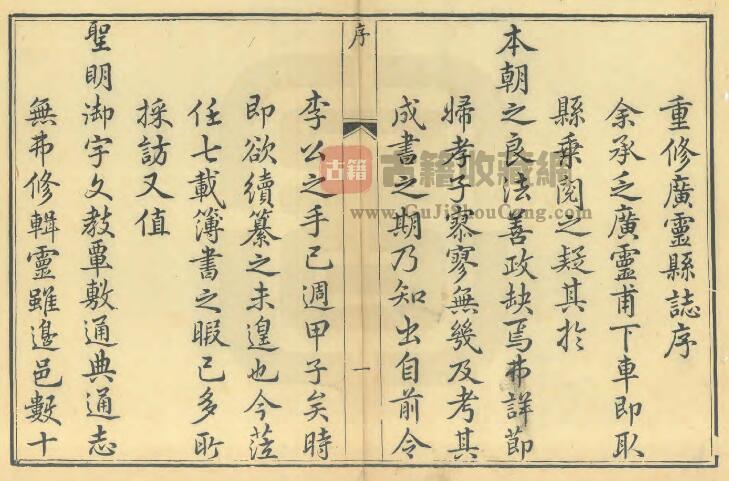 重修廣靈縣誌序
余承乏廣靈甫下車即取
縣乗閲之疑其於
本朝之良法善政缺焉弗詳節
婦孝子寥寥無幾及考其
成書之期乃知出自前令
序
一
李公之手已週甲子矣時
即欲續纂之未遑也今蒞
任七載簿書之暇已多所
採訪又值
聖明御宇文教覃敷通典通志
無弗修輯靈雖邊邑數十
古籍
古籍收藏網
www.GuJiShouCang.com